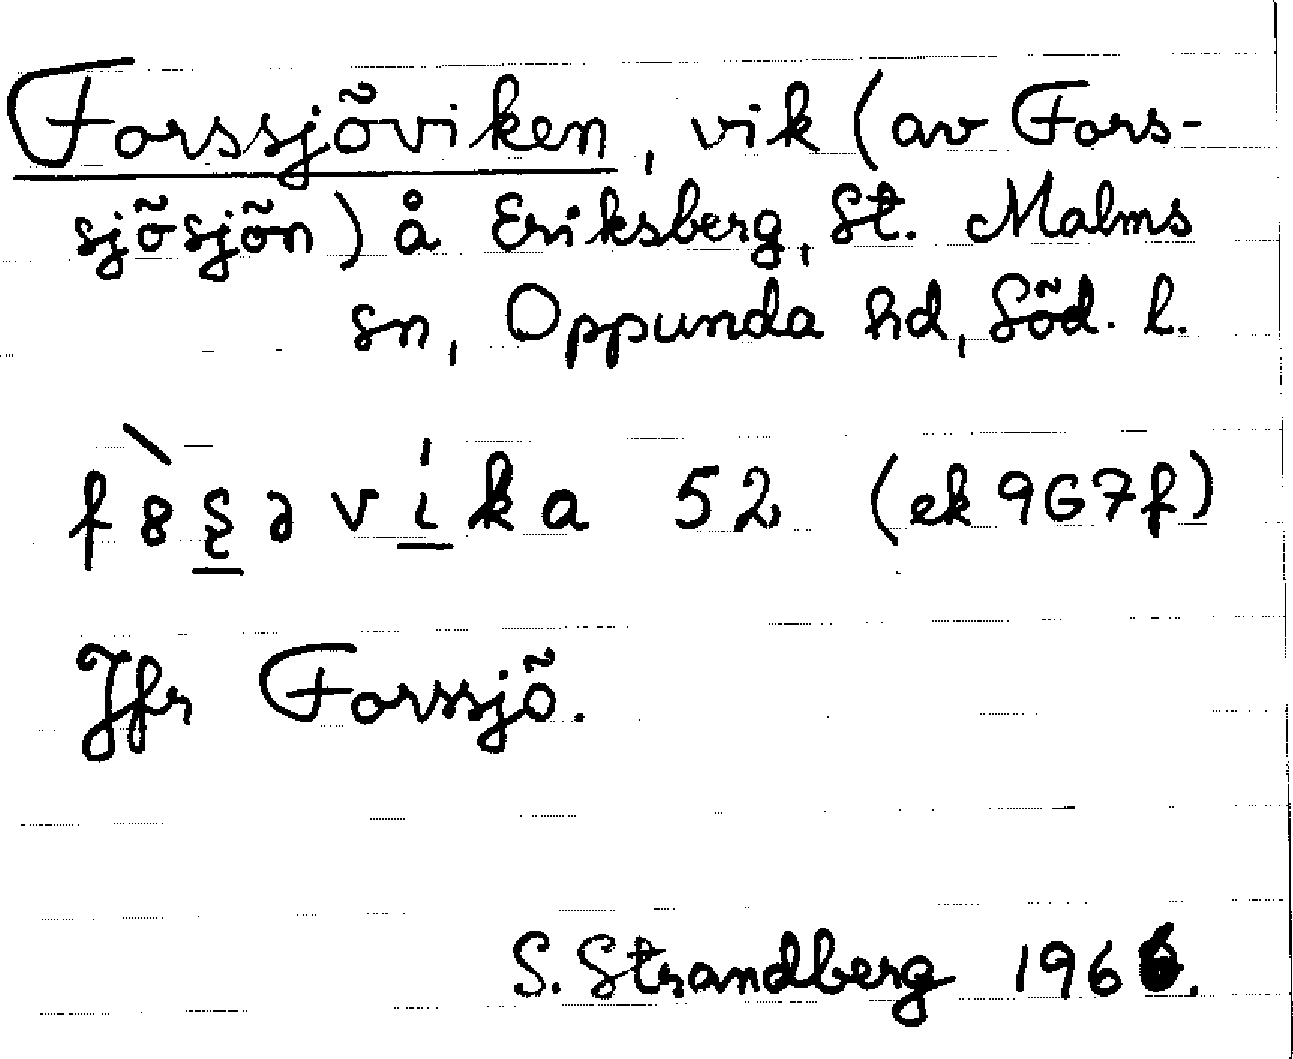 Forssjöviken, vik (av Fors-
sjösjön) å Eriksberg, St. Malms
sn, Oppunda hd, Söd. l.
52 (ek 967f)
Jfr Forssjö.
S. Strandberg 1966.